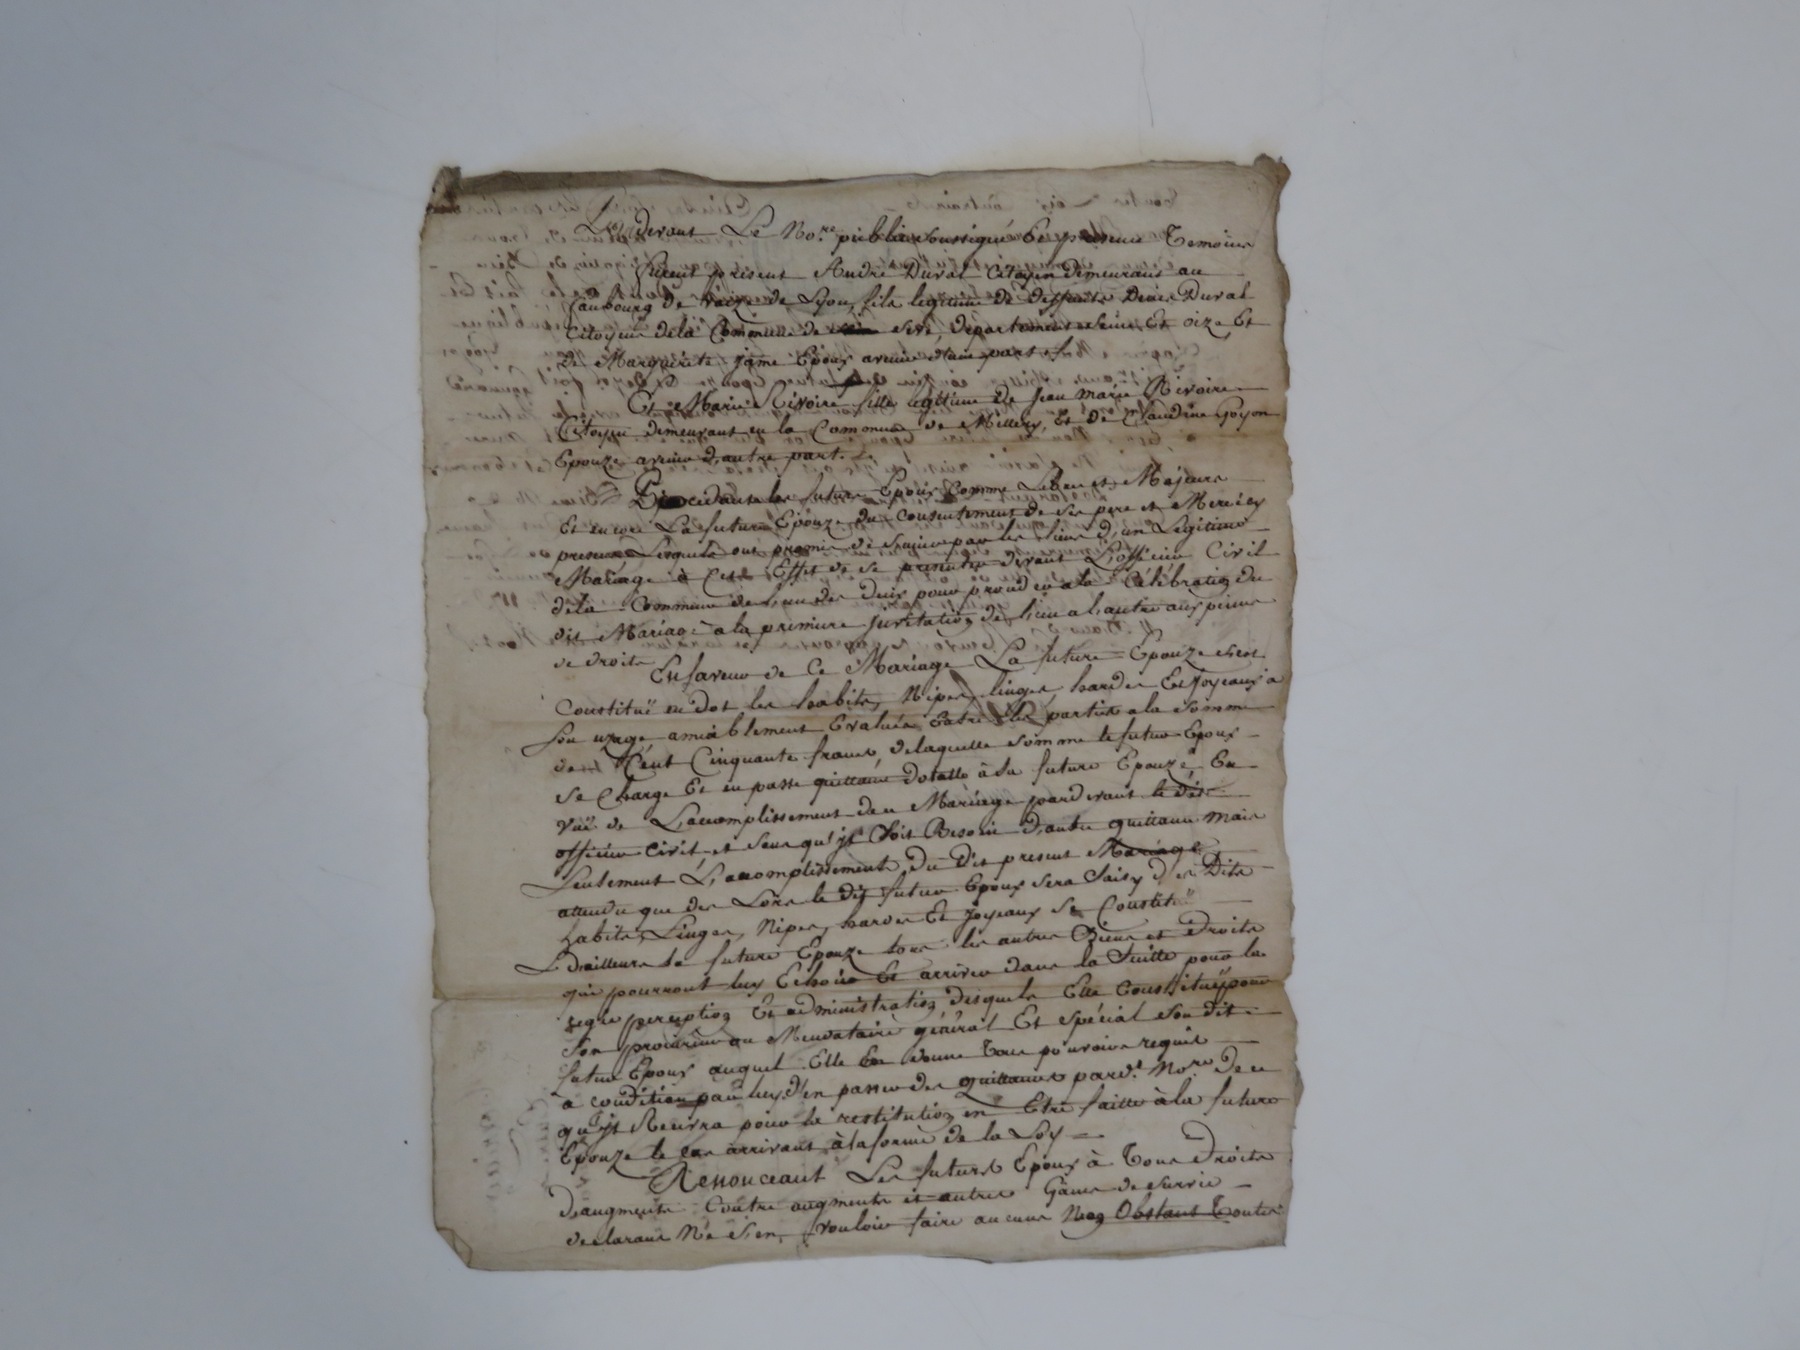 Pardevant Le No.re public soussigné Et presence Temoins
furent present André Duval Citoyen demeurant au
faubourg de vaize de Lyon, fils legitime de deffunts Denis Duval
Citoyen dela Commune de Sevre, département de Seine Et oize, Et
de Marguerite jame Epoux avenir d'une part
Et Marie Rivoire fille legitime de Jean Marie Rivoire
Citoyen demeurant en la Commune de Millery, Et de Claudine Goyon
Epouze avenir d'autre part.
Procedants les futurs Epoux comme Libre et Majeurs
Et encore La future Epouze du Consentement de Ses pere et Mere icy
presens Lesquels ont promis de S'unir par les liens d'un Legitime
Mariage à Cet Effet de se presenter devant L'officier Civil
dela Commune de l'un des deux pour proceder ala Célébration du
dit Mariage à la premiere Invitation de l'un a l'autre aux peines
de droits
En faveur de Ce Mariage La future Epouze s'est
Constitué en dot les habits, Nipes, linges, hardes Et Joyeaux a
Son uzage amiablement Evalués Entre les parties a la Somme
de Cent Cinquante francs, de laquelle Somme le futur Epoux
se Charge Et en passe quittance dotalle à Sa future Epouze En
vüe de L'accomplissement du Mariage pardevant le dit
officier Civil et Sans qu'il Soit Besoin d'autre quittance mais
Seulement L'accomplissement du dit present Mariage
attendu que des Lors le dit futur Epoux Sera Saisy des Dits
habits, Linges, Nipes, hardes Et Joyeaux Se Constitüe
d'ailleurs la future Epouze tous les autres Biens et Droits
qui pourront luy Echoir Et arriver dans la Suitte pour la
regie perception Et administration desquels Elle Constitue pour
Son procureur ou Mendataire général Et Spécial Son dit
futur Epoux auquel Elle En donne Tous pouvoirs requis
a condition par luy d'en passer des quittances pard.t No.re de ce
qu'il Recevra pour la restitution en Etre faitte à la future
Epouze le cas arrivant à la forme de la Loy
Renonceant Les futurs Epoux à Tous Droits
d'augments Contre augments et autres Gains de Survie
declarant Ne s'en vouloir faire aucuns Non Obstant Toutes